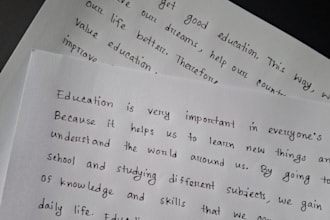 get good education. This way, w
our dreams, help our coun
our life better. Therefore,
value education.
improve
Education is very important in everyone's
Because it helps us to learn new things an
understand the world around us. By going to
school and studying different subjects, we gain
of knowledge and skills that we
daily life.